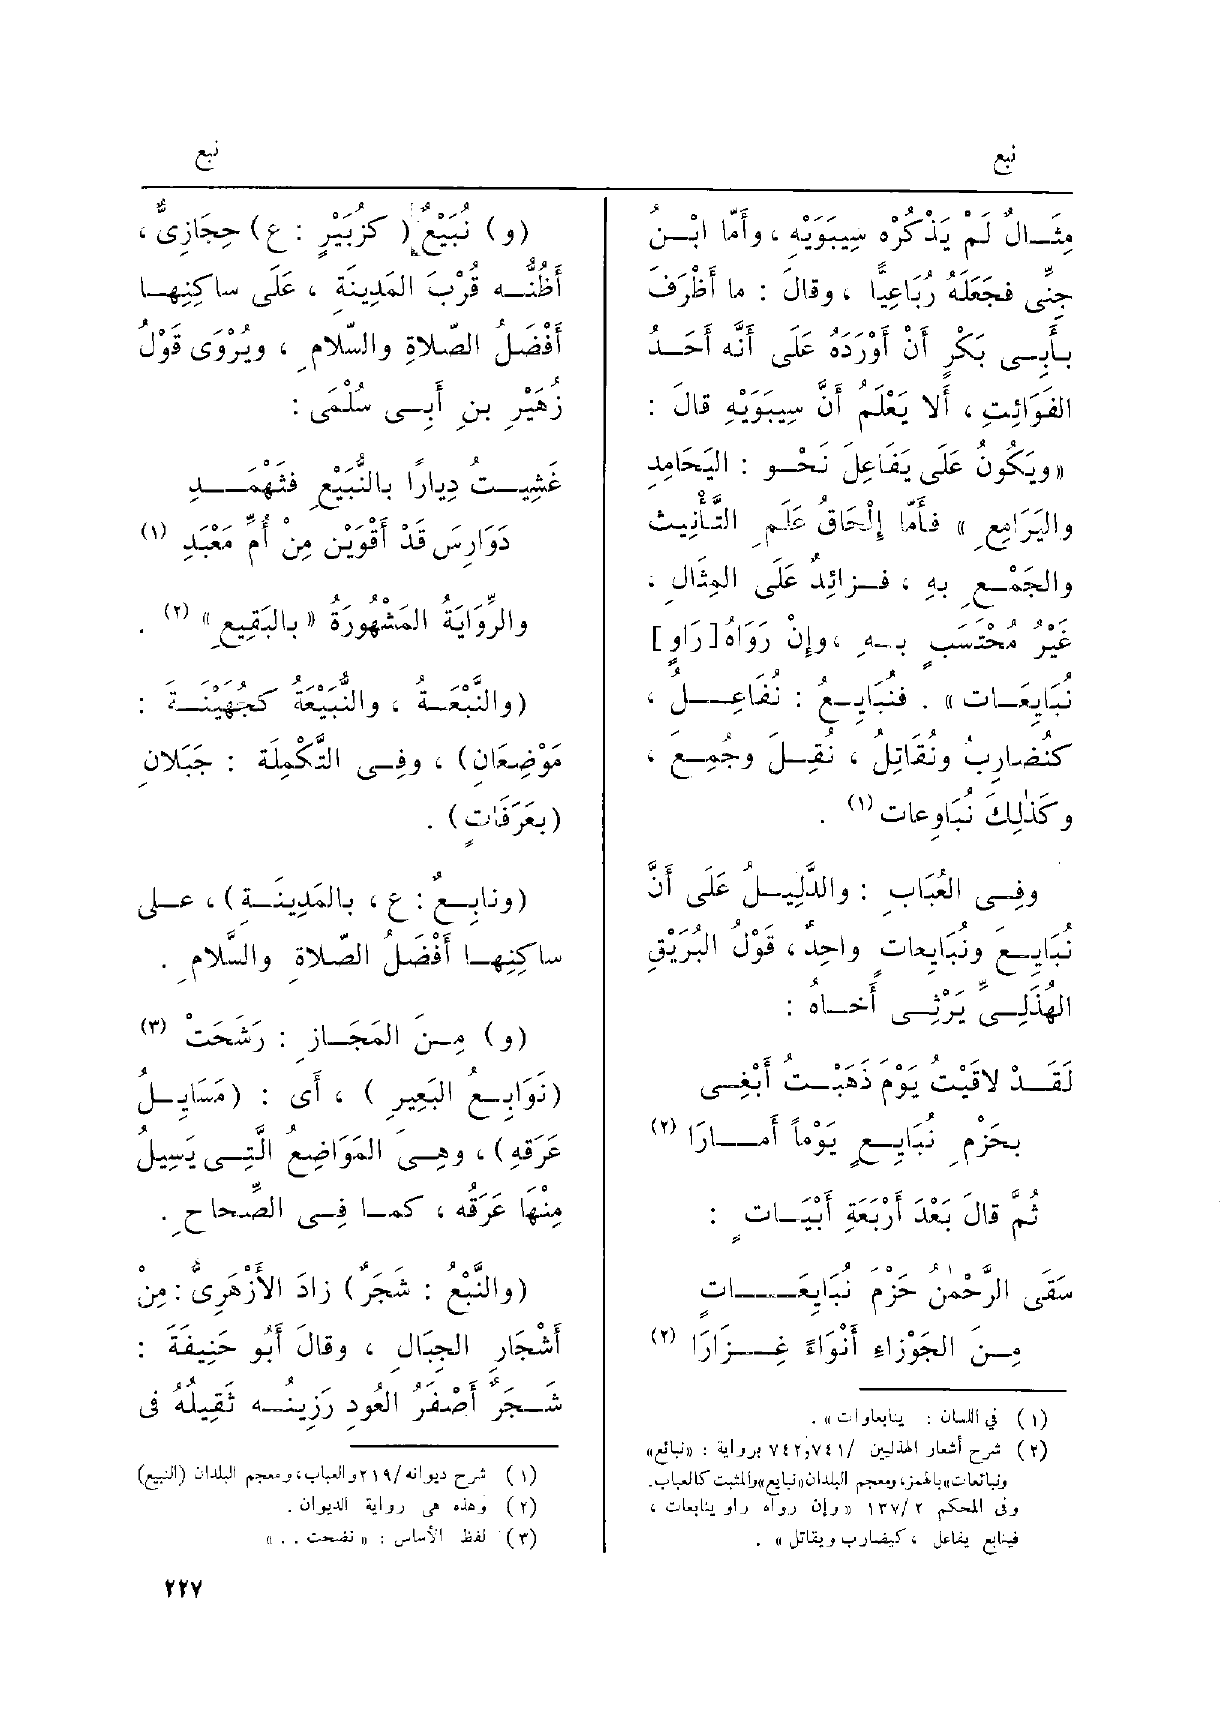 نبع
نبع
مِثَالٌ لَمْ يَذْكُرْه سِيبَوَيْهِ ، وأَمّا ابْنُ
جِنِّى فجَعَلَهُ رُبَاعِيًّا ، وقالَ : ما أَظْرَفَ
بأَبِى بَكْرٍ أَنْ أَوْرَدَهُ عَلَى أَنَّه أَحَدُ
الفَوَائِتِ ، أَلا يَعْلَم أَنَّ سِيبَوَيْهِ قالَ :
«ويَكُونُ عَلَى يَفَاعِلَ نَحْو : اليَحَامِدِ
واليَرَامِعِ » فأَمّا إِلْحَاقُ عَلَمِ التَّأْنِيث
والجَمْعِ بهِ ، فزائِدٌ عَلَى المِثَالِ ،
غَيْرُ مُحْتَسَبٍ بهِ ، وإِنْ رَوَاهُ [رَاوٍ]
نُبَايِعَات » . فنُبَايِعُ : نُفَاعِلُ ،
كنُضَارِبُ ونُقَاتِلُ ، نُقِلَ وجُمِعَ ،
وكَذٰلِكَ نُبَاوِعات (١) .
وفِى العُبَابِ : والدَّلِيلُ عَلَى أَنَّ
نُبَايِعَ ونُبَايِعاتٍ واحِدٌ ، قَوْلُ البُرَيْقِ
الهُذَلِىِّ يَرْثِى أَخاهُ :
لَقَدْ لاقَيْتُ يَوْمَ ذَهَبْتُ أَبْغِى
بحَزْمِ نُبَايِعٍ يَوْماً أَمَارَا (٢)
ثُمَّ قالَ بَعْدَ أَرْبَعَةِ أَبْيَاتٍ :
سَقَى الرَّحْمٰنُ حَزْمَ نُبَايِعَاتٍ
مِنَ الجَوْزاءِ أَنْوَاءً غِزَارَا (٢)
(١) فى اللسان : ينابعاوات » .
(٢) شرح أشعار الهذليين /٧٤٢,٧٤١ برواية : «نبائع»
ونبائعات» بالهمز، ومعجم البلدان «نبايع» والمثبت كالعباب.
وفى المحكم ١٣٧/٢ «وإن رواه راو ينابعات ،
فينابع يفاعل ، كيضارب ويقاتل » .
(و) نُبَيْعٌ ( كزُبَيْرٍ : ع) حِجَازِىٌّ ،
أَظُنُّه قُرْبَ المَدِينَةِ ، عَلَى ساكِنِها
أَفْضَلُ الصّلاةِ والسّلامِ ، ويُرْوَى قَوْلُ
زُهَيْرِ بنِ أَبِى سُلْمَى :
غَشِيتُ دِيارًا بالنُّبَيْعِ فثَهْمَدِ
دَوَارِسَ قَدْ أَقْوَيْن مِنْ أُمِّ مَعْبَدِ (١)
والرِّوَايَةُ المَشْهُورَةُ « بالبَقِيعِ » (٢) .
(والنَّبْعَةُ ، والنُّبَيْعَةُ كجُهَيْنَةَ :
مَوْضِعَانِ) ، وفِى التَّكْمِلَة : جَبَلانِ
(بعَرَفَاتٍ) .
(ونابِعٌ : ع ، بالمَدِينَةِ) ، على
ساكِنِها أَفْضَلُ الصّلاةِ والسَّلامِ .
(و) مِنَ المَجَازِ : رَشَحَتْ (٣)
(نَوَابِعُ البَعِيرِ ) ، أَى : (مَسَايِلُ
عَرَقِهِ) ، وهِىَ المَوَاضِعُ الَّتِى يَسِيلُ
مِنْهَا عَرَقُه ، كما فِى الصِّحاحِ .
(والنَّبْعُ : شَجَرٌ) زادَ الأَزْهَرِىُّ : مِنْ
أَشْجَارِ الجِبَالِ ، وقالَ أَبُو حَنِيفَةَ :
شَجَرٌ أَصْفَرُ العُودِ رَزِينُه ثَقِيلُهُ فى
(١) شرح ديوانه /٢١٩ والعباب، ومعجم البلدان (النبيع)
(٢) وهذه هى رواية الديوان .
(٣) لفظ الأساس : « نضحت . . »
٢٢٧